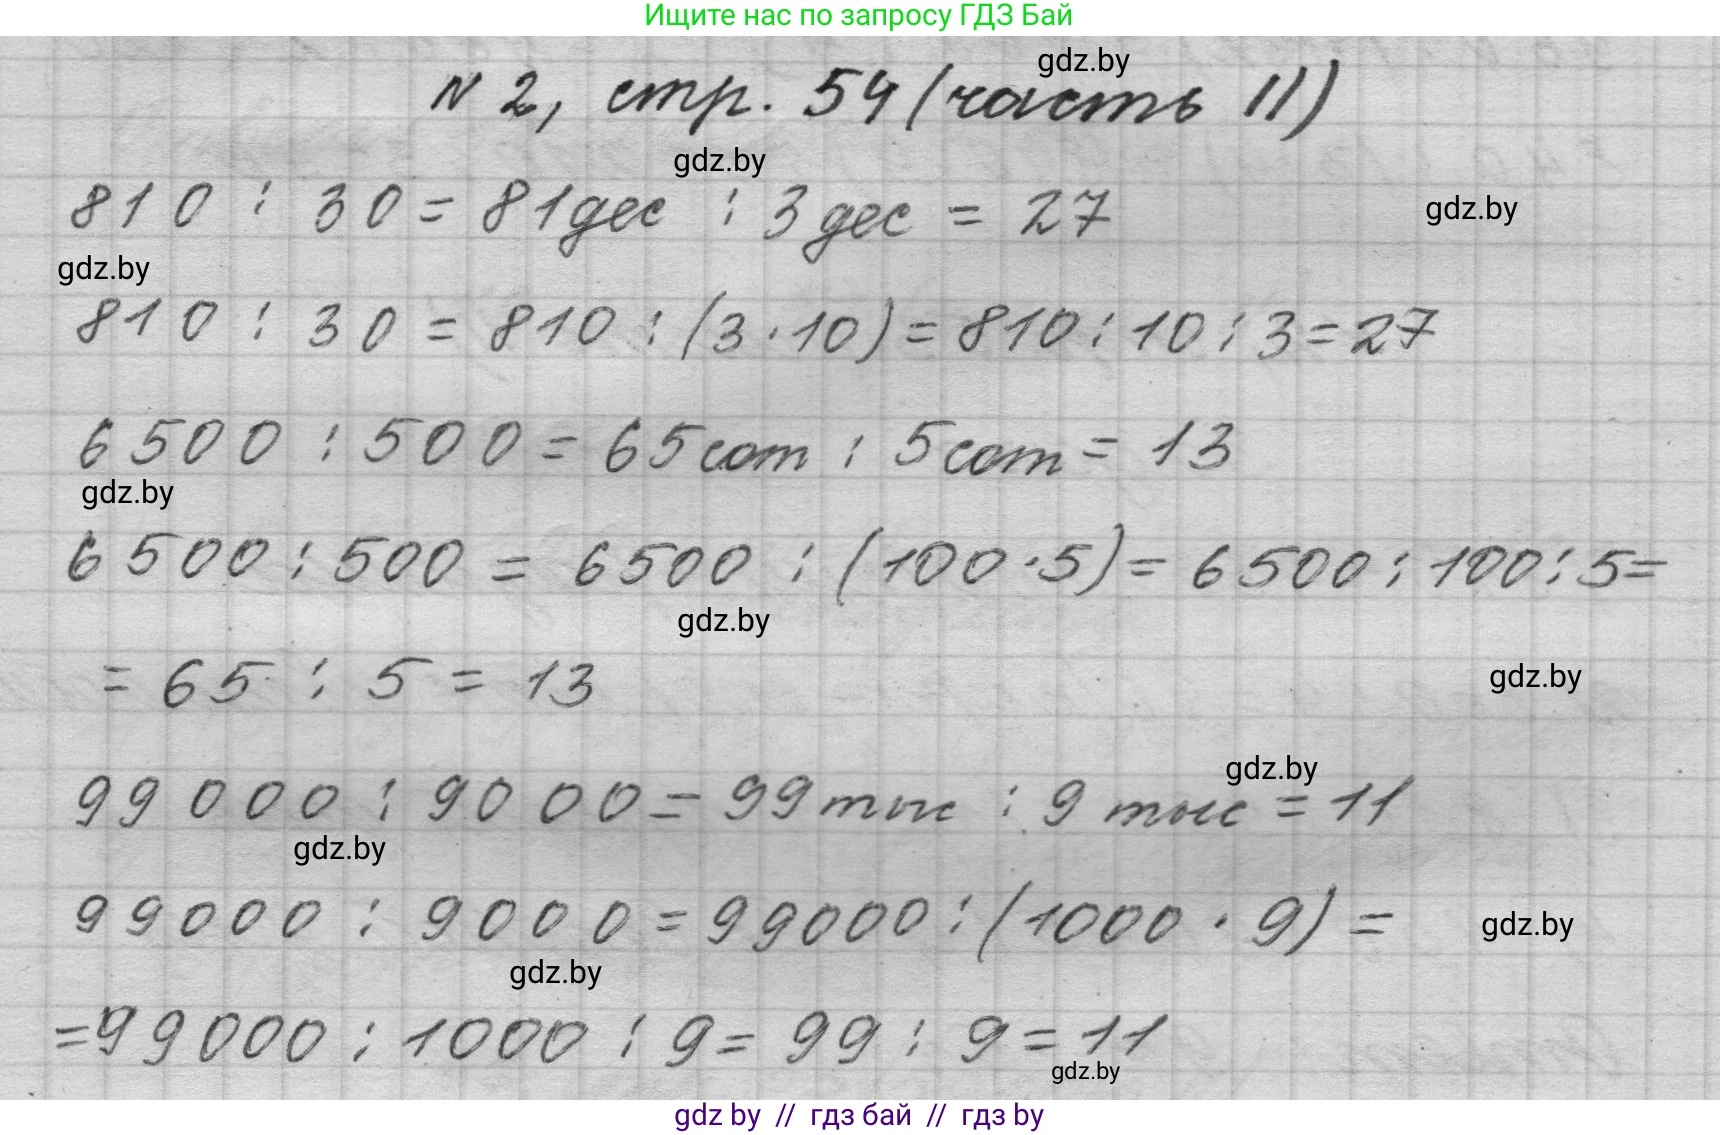 Ищите нас по запросу ГДЗ Бай
gdz.by
N 2, стр. 54 (часть II)
gdz.by
810 : 30 = 81дес : 3дес = 27
gdz.by
gdz.by
810 : 30 = 810 : (3 · 10) = 810 : 10 : 3 = 27
6500 : 500 = 65сот : 5сот = 13
gdz.by
6500 : 500 = 6500 : (100 · 5) = 6500 : 100 : 5 =
gdz.by
= 65 : 5 = 13
gdz.by
gdz.by
99 000 : 9000 = 99тыс : 9 тыс = 11
gdz.by
99000 : 9000 = 99000 : (1000 · 9) =
gdz.by
gdz.by
= 99000 : 1000 : 9 = 99 : 9 = 11
gdz.by
gdz by // гдз бай // гдз by